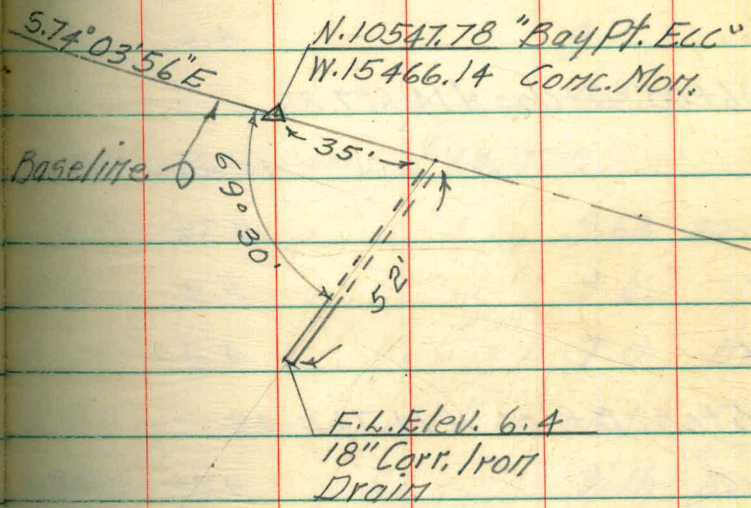 S.74°03'56"E
N.10547.78 "Bay Pt. Ecc"
W.15466.14 Conc. Mon.
Baseline
35'
69°30'
52'
F.L. Elev. 6.4
18" Corr. Iron
Drain